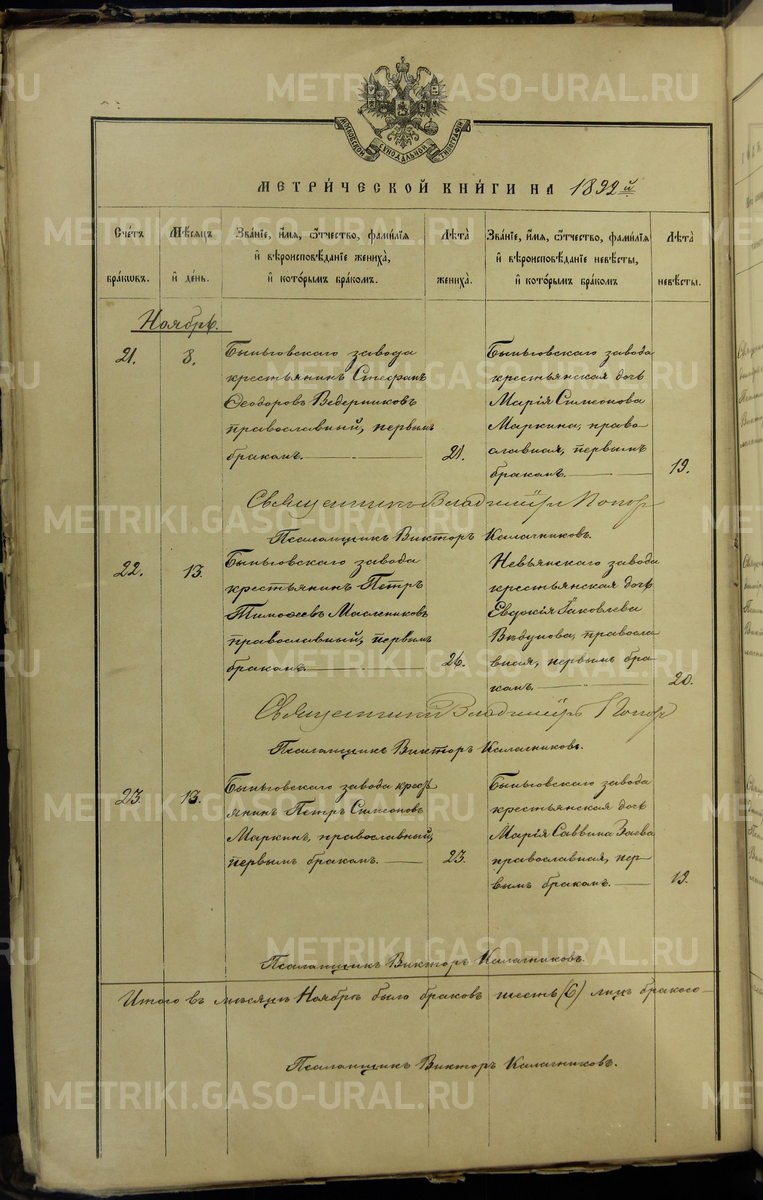 METRIKI.GASO-URAL.RU
МОСКОВСКОЙ СУНОДАЛЬНОЙ ТИПОГРАФІИ
МЕТРИ́ЧЕСКОЙ КНИ́ГИ НА 1892й
Сче́тъ бра́кωвъ.
Мѣ́сѧцъ и де́нь.
Зва́нїе, и́мѧ, ѻ́тчество, фами́лїѧ и вѣроисповѣ́данїе жениха̀, и кото́рымъ бра́комъ.
Лѣ́та жениха̀.
Зва́нїе, и́мѧ, ѻ́тчество, фами́лїѧ и вѣроисповѣ́данїе невѣ́сты, и кото́рымъ бра́комъ
Лѣ́та невѣ́сты.
Ноябрь.
21.
8.
Быньговскаго завода
крестьянинъ Стефанъ
Ѳеодоровъ Ведерниковъ
православный, первымъ
бракомъ.
21.
Быньговскаго завода
крестьянская дочь
Марія Симеонова
Маркина, право
славная, первымъ
бракомъ.
19.
Священникъ Владиміръ Попов
Псаломщикъ Викторъ Калачниковъ.
22.
13.
Быньговскаго завода
крестьянинъ Петръ
Тимофеевъ Маслениковъ
православный, первымъ
бракомъ.
26.
Невьянскаго завода
крестьянская дочь
Евдокія Іаковлева
правосла
вная, первымъ бра-
комъ.
20.
Священникъ Владиміръ Попов
Псаломщикъ Викторъ Калачниковъ.
23.
13.
Быньговскаго завода крест
янинъ Петръ Симеоновъ
Маркинъ, православный,
первымъ бракомъ.
23.
Быньговскаго завода
крестьянская дочь
Марія Саввина Заева
православная, пер-
вымъ бракомъ.
19.
Псаломщикъ Викторъ Калачниковъ.
Итого въ мѣсяцѣ Ноябрѣ было браковъ шесть (6) лицъ бракосо-
Псаломщикъ Викторъ Калачниковъ.